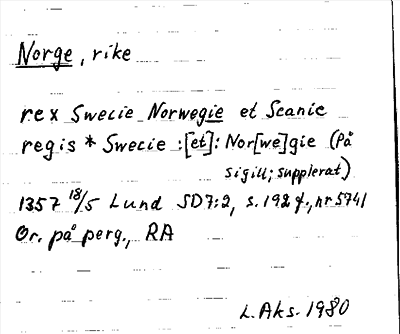 Norge, rike
rex Swecie Norwegie et Scanie
regis * Swecie :[et]: Nor[we]gie (På
sigill; supplerat)
1357 18/5 Lund SD7:2, s. 192 f., nr 5741
Or. på perg., RA
L. Aks. 1980